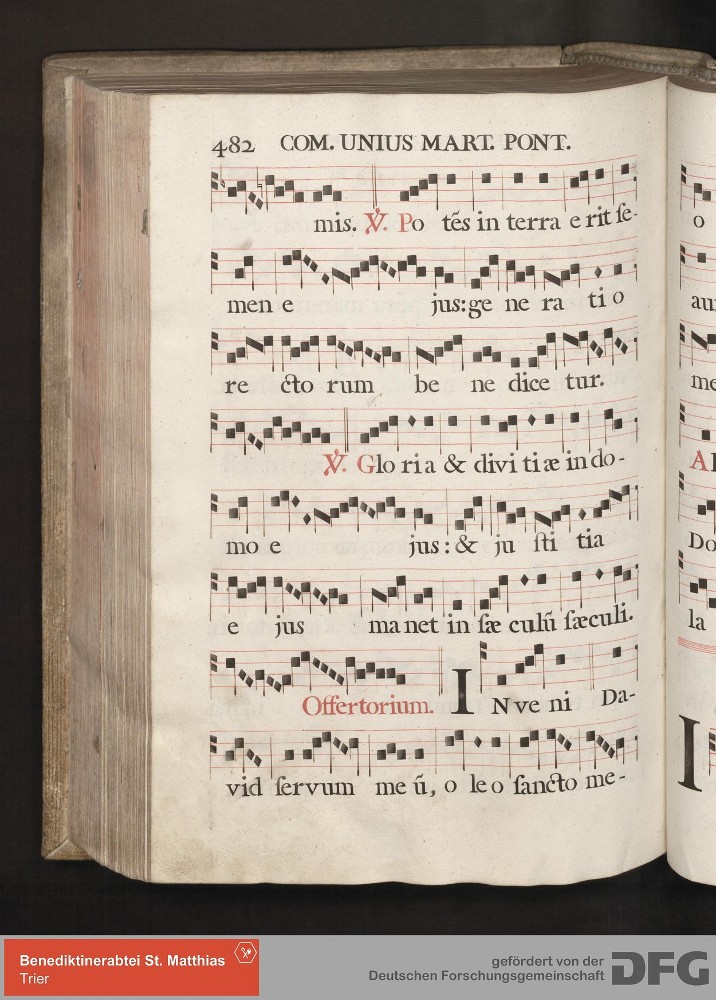 482 COM. UNIUS MART. PONT.
mis. ℣. Po tẽs in terra e rit ſe-
men e jus: ge ne ra ti o
re cto rum be ne dice tur.
℣. Glo ri a & divi ti æ in do-
mo e jus: & ju ſti tia
e jus ma net in ſæ culũ ſæculi.
Offertorium. I N ve ni Da-
vid ſervum me ũ, o le o ſancto me-
o
au
me
A
Do
la
I
Benediktinerabtei St. Matthias
Trier
gefördert von der
Deutschen Forschungsgemeinschaft DFG